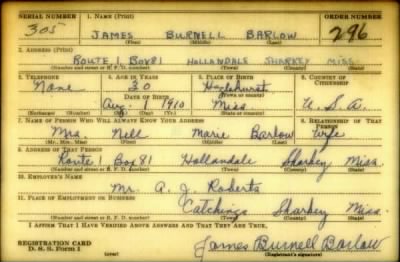 SERIAL NUMBER 1. NAME (Print) ORDER NUMBER
305 JAMES BURNELL BARLOW 296
(First) (Middle) (Last)
2. ADDRESS (Print)
ROUTE 1 BOX 81 HOLLANDALE SHARKEY MISS.
(Number and street or R. F. D. number) (Town) (County) (State)
3. TELEPHONE 4. AGE IN YEARS 5. PLACE OF BIRTH 6. COUNTRY OF CITIZENSHIP
None 30 Hazlehurst
DATE OF BIRTH (Town or county)
Aug. 1 1910 Miss U. S. A.
(Exchange) (Number) (Mo.) (Day) (Yr.) (State or country)
7. NAME OF PERSON WHO WILL ALWAYS KNOW YOUR ADDRESS 8. RELATIONSHIP OF THAT PERSON
Mrs. Nell Marie Barlow Wife
(Mr., Mrs., Miss) (First) (Middle) (Last)
9. ADDRESS OF THAT PERSON
Route 1 Box 81 Hollandale Sharkey Miss.
(Number and street or R. F. D. number) (Town) (County) (State)
10. EMPLOYER'S NAME
Mr. A. J. Roberts
11. PLACE OF EMPLOYMENT OR BUSINESS
Catchings Sharkey Miss.
(Number and street or R. F. D. number) (Town) (County) (State)
I AFFIRM THAT I HAVE VERIFIED ABOVE ANSWERS AND THAT THEY ARE TRUE.
REGISTRATION CARD
D. S. S. Form 1 (over) James Burnell Barlow
(Registrant's signature)